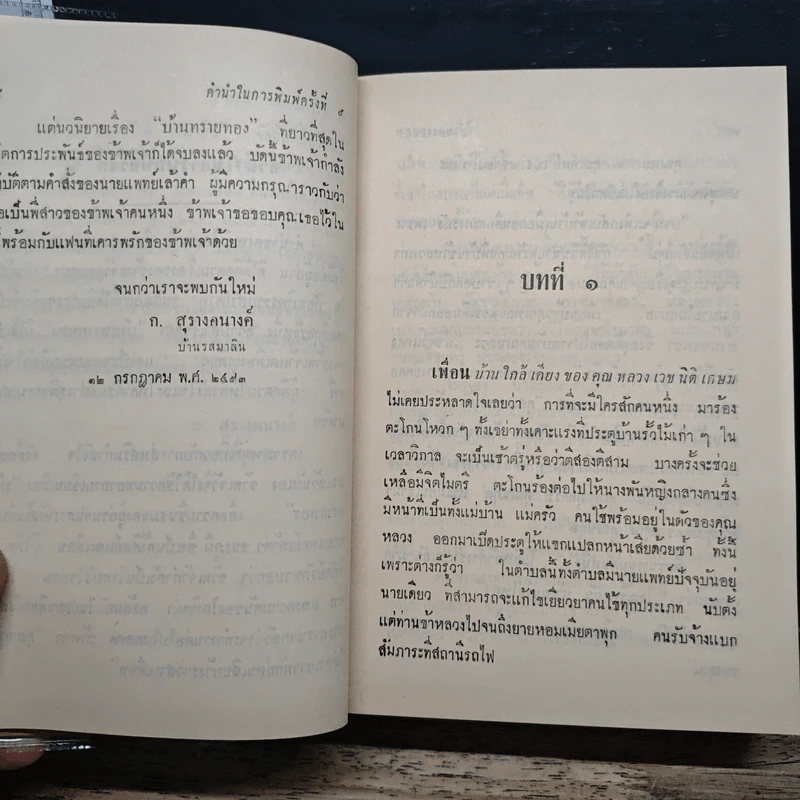 คำนำในการพิมพ์ครั้งที่ ๑
แต่นวนิยายเรื่อง “บ้านทรายทอง” ที่ยาวที่สุดใน
การประพันธ์ของข้าพเจ้าก็ได้จบลงแล้ว บัดนี้ข้าพเจ้ากำลัง
ตามคำสั่งของนายแพทย์เล้าคำ ผู้มีความกรุณาราวกับว่า
เป็นพี่สาวของข้าพเจ้าคนหนึ่ง ข้าพเจ้าขอขอบคุณเธอไว้ใน
พร้อมกับแฟนที่เคารพรักของข้าพเจ้าด้วย
จนกว่าเราจะพบกันใหม่
ก. สุรางคนางค์
บ้านรสมาลิน
๑๒ กรกฎาคม พ.ศ. ๒๔๙๓
บทที่ ๑
เพื่อน บ้าน ใกล้ เคียง ของ คุณ หลวง เวช นิติ เกษม
ไม่เคยประหลาดใจเลยว่า การที่จะมีใครสักคนหนึ่ง มาร้อง
ตะโกนโหวก ๆ ทั้งเขย่าทั้งเคาะแรงที่ประตูบ้านรั้วไม้เก่า ๆ ใน
เวลาวิกาล จะเป็นเช้าตรู่หรือว่าตีสองตีสาม บางครั้งจะช่วย
เหลือมีจิตไมตรี ตะโกนร้องต่อไปให้นางพันหญิงกลางคนซึ่ง
มีหน้าที่เป็นทั้งแม่บ้าน แม่ครัว คนใช้พร้อมอยู่ในตัวของคุณ
หลวง ออกมาเปิดประตูให้แขกแปลกหน้าเสียด้วยซ้ำ ทั้งนี้
เพราะต่างก็รู้ว่า ในตำบลนี้ทั้งตำบลมีนายแพทย์ปัจจุบันอยู่
นายเดียว ที่สามารถจะแก้ไขเยียวยาคนไข้ทุกประเภท นับตั้ง
แต่ท่านข้าหลวงไปจนถึงยายหอมเมียตาพุก คนรับจ้างแบก
สัมภาระที่สถานีรถไฟ